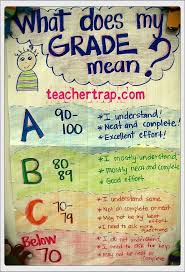 What does my
GRADE
mean?
teachertrap.com
A 90-100
* I understand!
* Neat and complete!
* Excellent effort!
B 80-89
* I mostly understand
* Mostly neat and complete
* Good effort
C 70-79
* I understand some.
* Not as complete or neat
* May not be my best effort
* I need to ask more
Below 70
* I do not understand.
* I need to ask for help
* May not be neat or complete